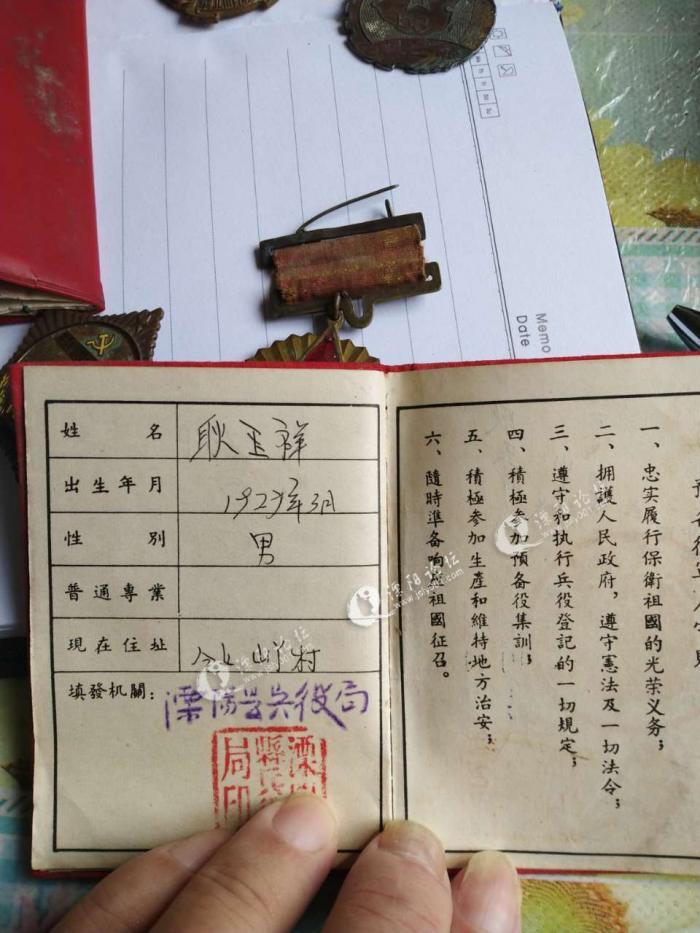 Memo
Date
姓名 耿玉祥
出生年月 1929年3月
性別 男
普通專業
現在住址 村
填發机關：溧陽县兵役局
局印
一、忠实履行保衛祖國的光荣义务；
二、拥護人民政府，遵守憲法及一切法令；
三、遵守和执行兵役登記的一切規定；
四、積極参加預备役集訓；
五、積極参加生產和維持地方治安；
六、隨時準备响應祖國征召。
溧阳论坛